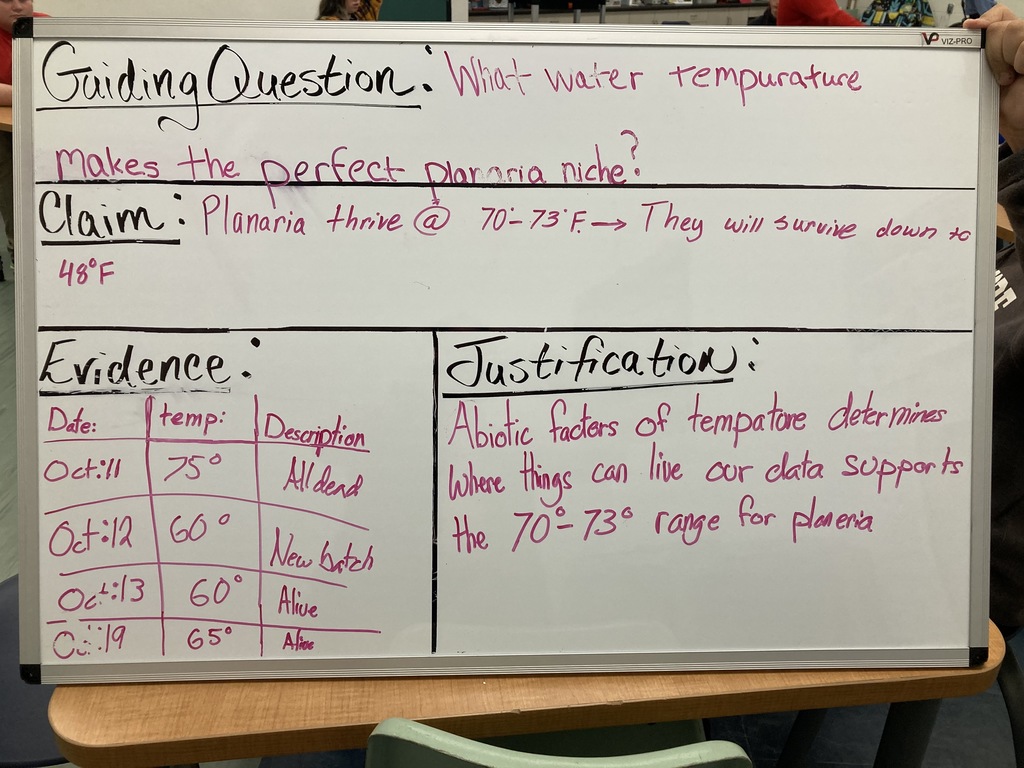 VP VIZ-PRO
Guiding Question: What water tempurature
makes the perfect planaria niche?
Claim: Planaria thrive @ 70°-73°F. → They will survive down to
48°F
Evidence:
Date: temp: Description
Oct:11 75° All dead
Oct:12 60° New batch
Oct:13 60° Alive
Oct:19 65° Alive
Justification:
Abiotic factors of tempatore determines
where things can live our data supports
the 70°-73° range for planeria